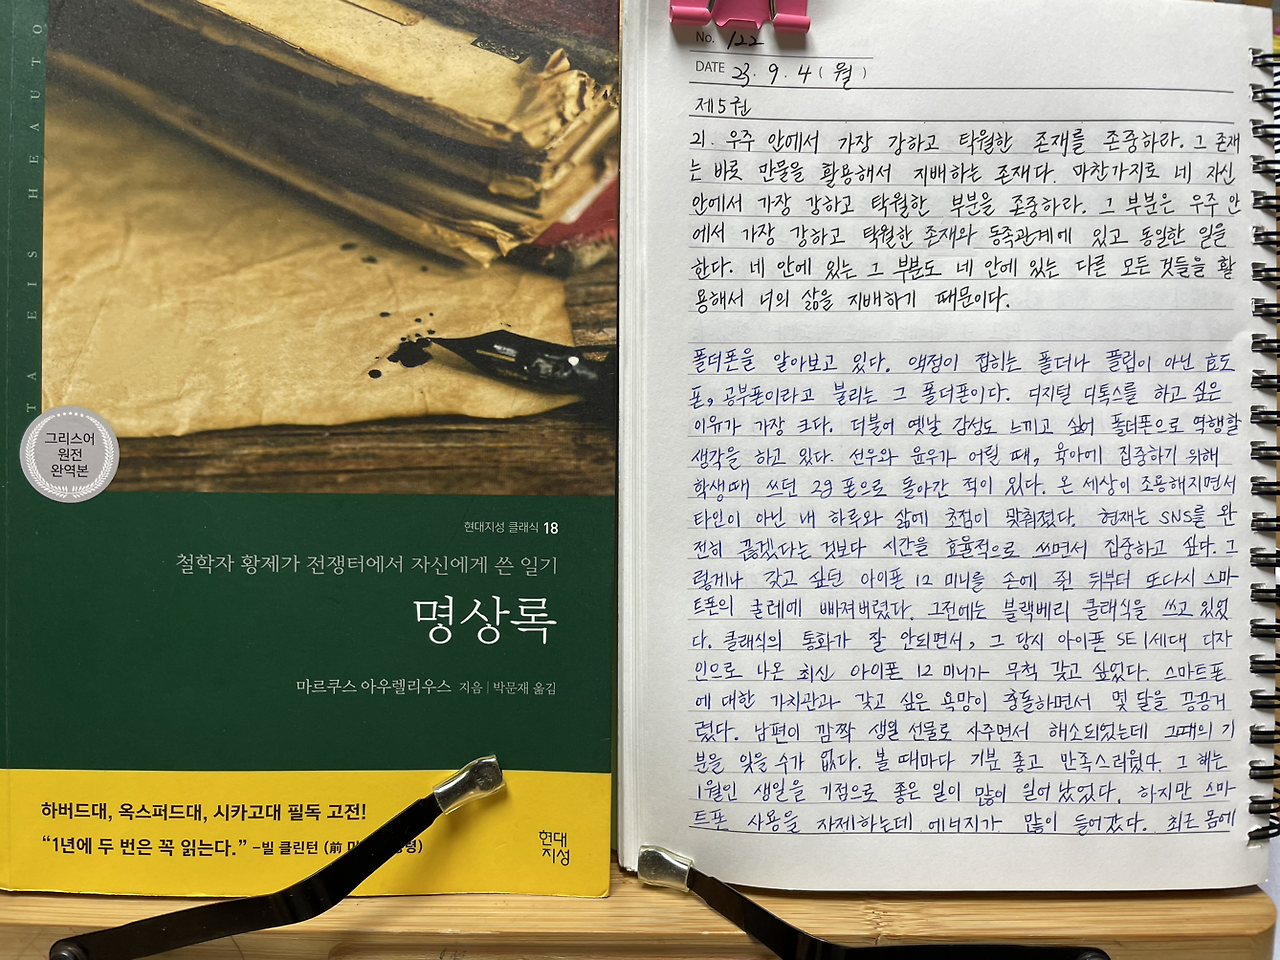 TAEISHEAUTO
그리스어
원전
완역본
현대지성 클래식 18
철학자 황제가 전쟁터에서 자신에게 쓴 일기
명상록
마르쿠스 아우렐리우스 지음 | 박문재 옮김
하버드대, 옥스퍼드대, 시카고대 필독 고전!
“1년에 두 번은 꼭 읽는다.” –빌 클린턴 (前
현대
지성
No. 122
DATE 23. 9. 4 (월)
제5권
21. 우주 안에서 가장 강하고 탁월한 존재를 존중하라. 그 존재
는 바로 만물을 활용해서 지배하는 존재다. 마찬가지로 네 자신
안에서 가장 강하고 탁월한 부분을 존중하라. 그 부분은 우주 안
에서 가장 강하고 탁월한 존재와 동족관계에 있고 동일한 일을
한다. 네 안에 있는 그 부분도 네 안에 있는 다른 모든 것들을 활
용해서 너의 삶을 지배하기 때문이다.
폴더폰을 알아보고 있다. 액정이 접히는 폴더나 플립이 아닌 효도
폰, 공부폰이라고 불리는 그 폴더폰이다. 디지털 디톡스를 하고 싶은
이유가 가장 크다. 더불어 옛날 감성도 느끼고 싶어 폴더폰으로 역행할
생각을 하고 있다. 선우와 윤우가 어릴 때, 육아에 집중하기 위해
학생때 쓰던 2G폰으로 돌아간 적이 있다. 온 세상이 조용해지면서
타인이 아닌 내 하루와 삶에 초점이 맞춰졌다. 현재는 SNS를 완
전히 끊겠다는 것보다 시간을 효율적으로 쓰면서 집중하고 싶다. 그
렇게나 갖고 싶던 아이폰 12 미니를 손에 쥔 뒤부터 또다시 스마
트폰의 굴레에 빠져버렸다. 그전에는 블랙베리 클래식을 쓰고 있었
다. 클래식의 통화가 잘 안되면서, 그 당시 아이폰 SE 1세대 디자
인으로 나온 최신 아이폰 12 미니가 무척 갖고 싶었다. 스마트폰
에 대한 가치관과 갖고 싶은 욕망이 충돌하면서 몇 달을 끙끙거
렸다. 남편이 깜짝 생일 선물로 사주면서 해소되었는데 그때의 기
분을 잊을 수가 없다. 볼 때마다 기분 좋고 만족스러웠다. 그 해는
1월인 생일을 기점으로 좋은 일이 많이 일어났었다. 하지만 스마
트폰 사용을 자제하는데 에너지가 많이 들어갔다. 최근 몸에